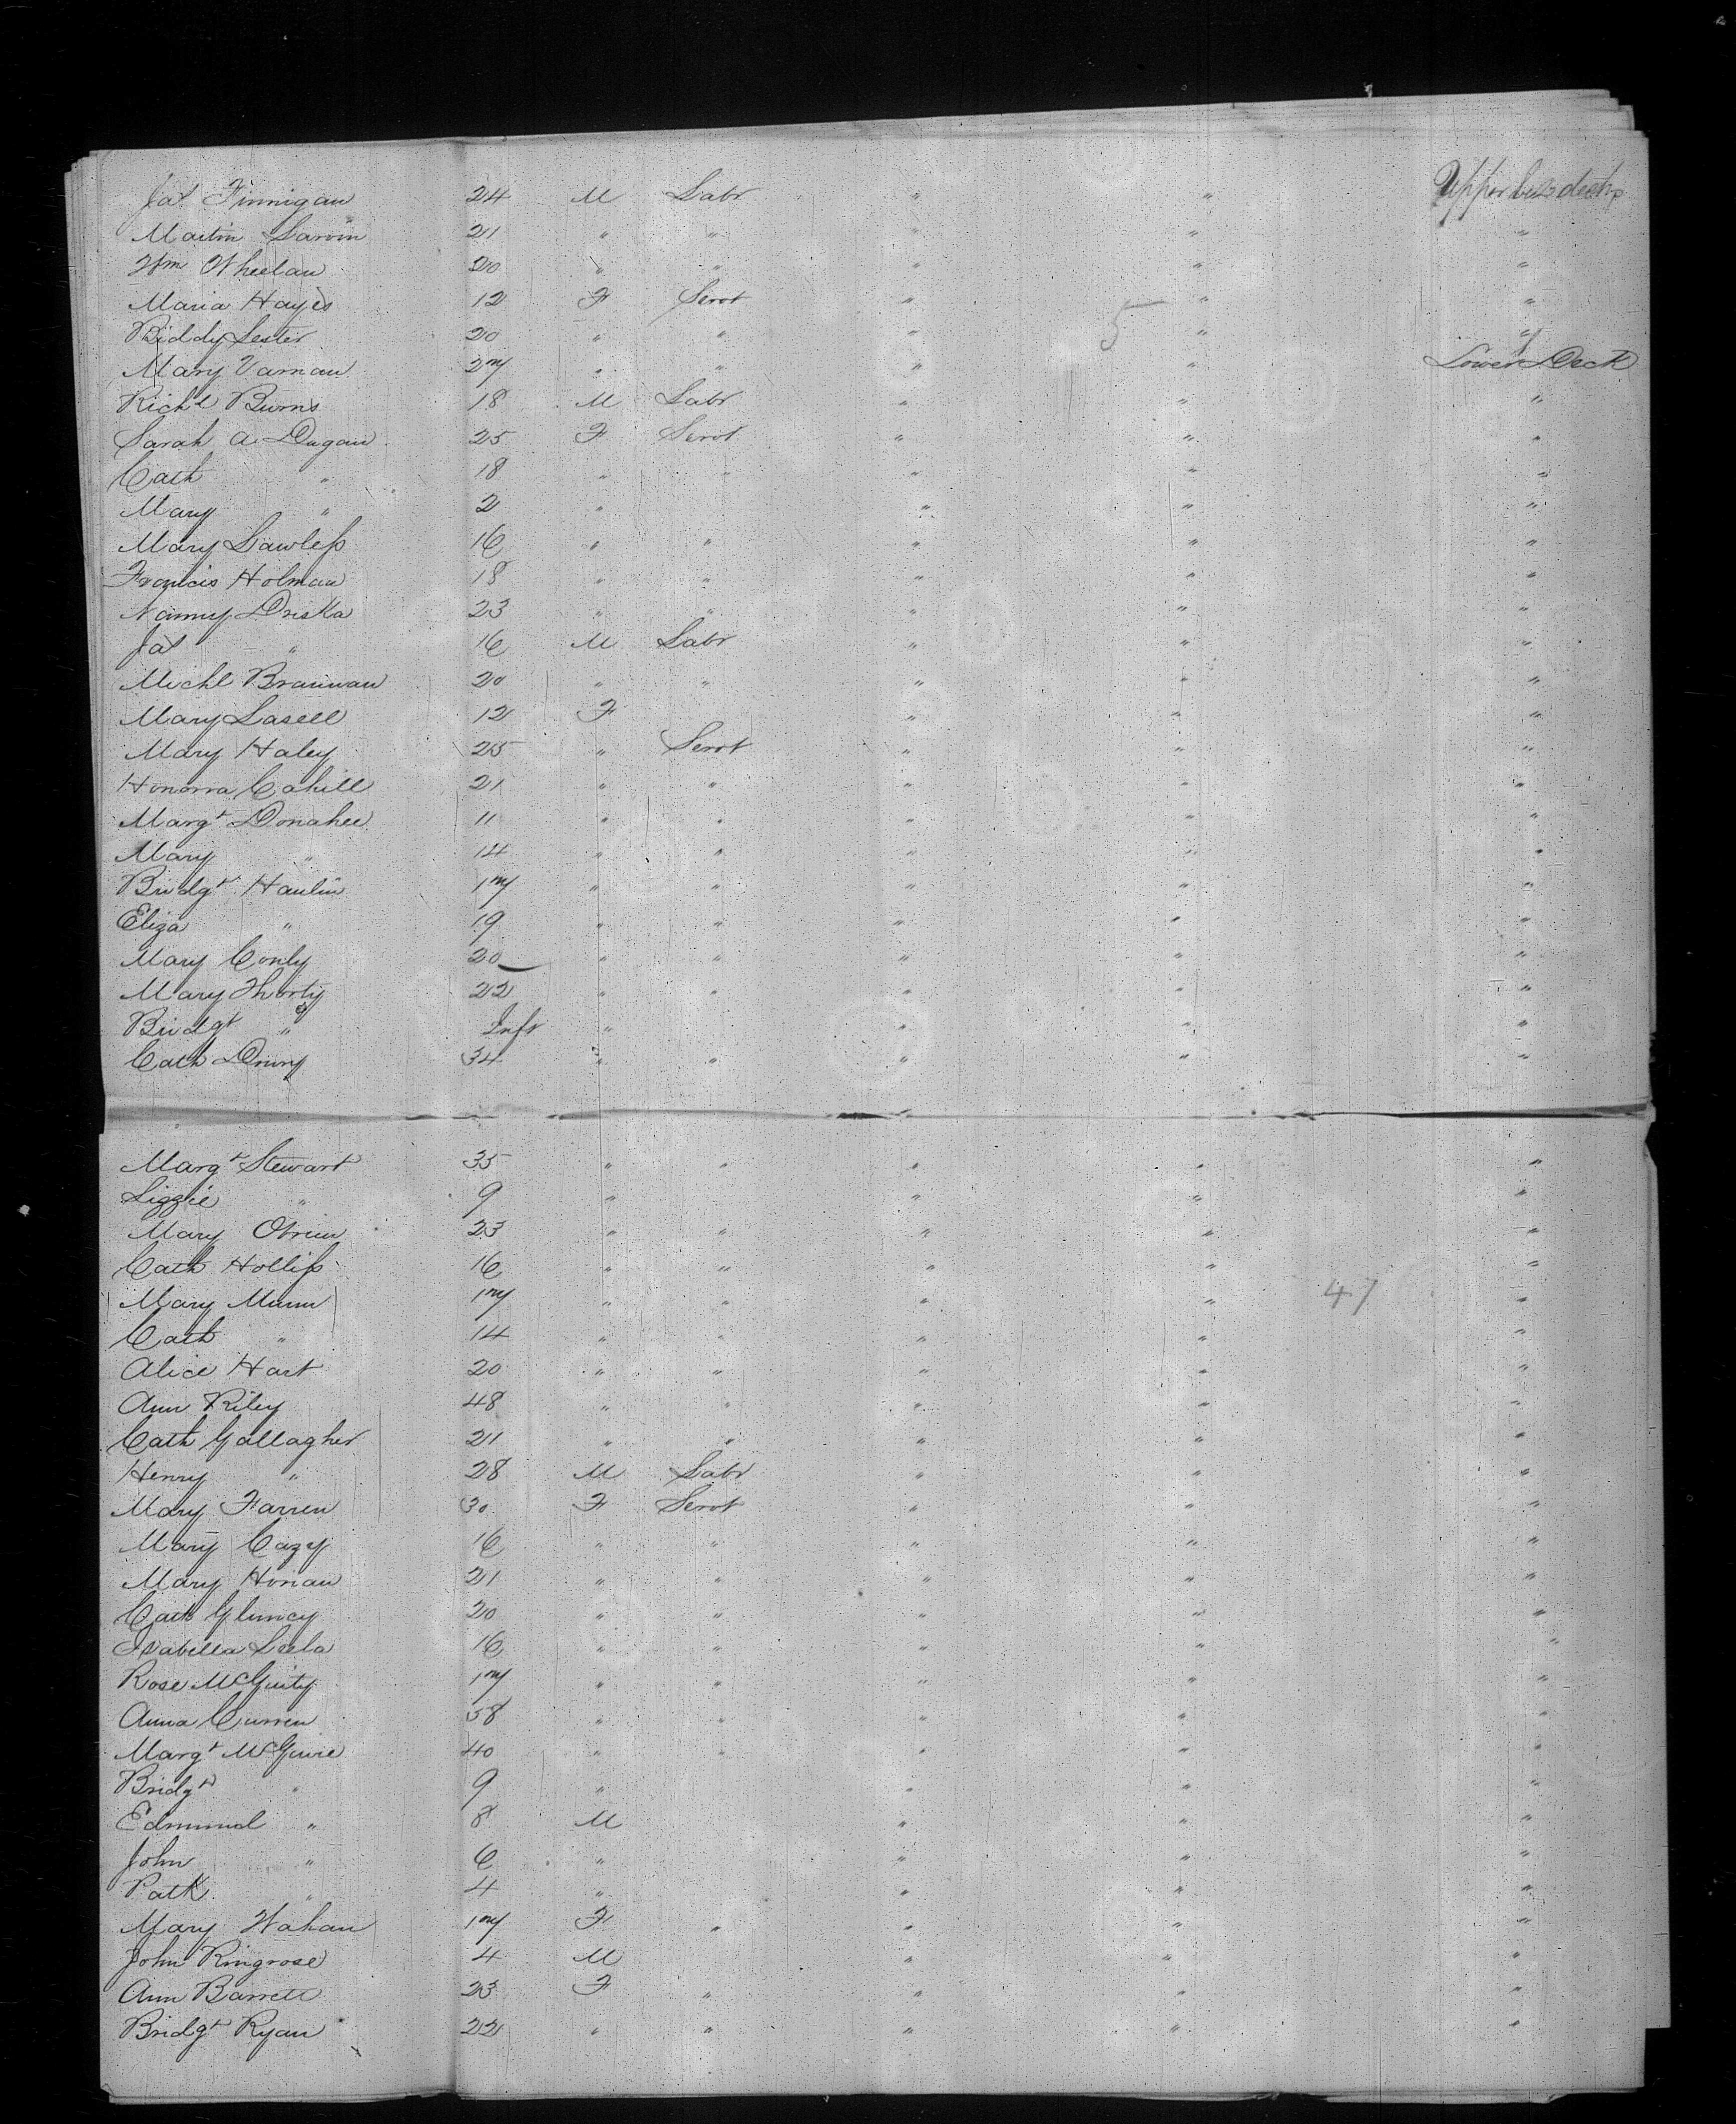 Jas Finnigan 24 M Labr " " Upper betw decks
Martin Larvin 21 " " " " "
Wm Wheelan 20 " " " " "
Maria Hayes 12 F Servt " " "
Biddy Lester 20 " " " 5 " "
Mary Varnan 27 " " " " Lower Deck
Richd Burns 18 M Labr " " "
Sarah A Dugan 25 F Servt " " "
Cath " 18 " " " " "
Mary " 2 " " " "
Mary Lawless 16 " " " " "
Francis Holman 18 " " " " "
Nanny Driska 23 " " " " "
Jas " 16 M Labr " " "
Michl Brannan 20 " " " " "
Mary Lasell 12 F " " "
Mary Haley 25 " Servt " " "
Honorra Cahill 21 " " " " "
Margt Donahee 11 " " " " "
Mary " 14 " " " " "
Bridgt Hanlin 17 " " " " "
Eliza " 19 " " " " "
Mary Conly 20 " " " " "
Mary Thorty 22 " " " " "
Bridgt " Inft " " " "
Cath Drury 34 " " " " "
Margt Stewart 35 " " " " "
Lizzie " 9 " " "
Mary Obrien 23 " " " " "
Cath Holliss 16 " " " " "
Mary Munn 17 " " " " 47 "
Cath " 14 " " " " "
Alice Hart 20 " " " " "
Ann Riley 48 " " " " "
Cath Gallagher 21 " " " " "
Henry " 28 M Labr " " "
Mary Farren 30 F Servt " " "
Mary Cazy 16 " " " " "
Mary Honan 21 " " " " "
Cath Gluncy 20 " " " " "
Isabella Leela 16 " " " " "
Rose McGinty 17 " " " " "
Anna Curren 58 " " " " "
Margt McGuire 40 " " " " "
Bridgt " 9 " " " "
Edmund " 8 M " " "
John " 6 " " " "
Patk " 4 " " " "
Mary Wahan 17 F " " " "
John Ringrose 4 M " " "
Ann Barrett 23 F " " " "
Bridgt Ryan 22 " " " " "